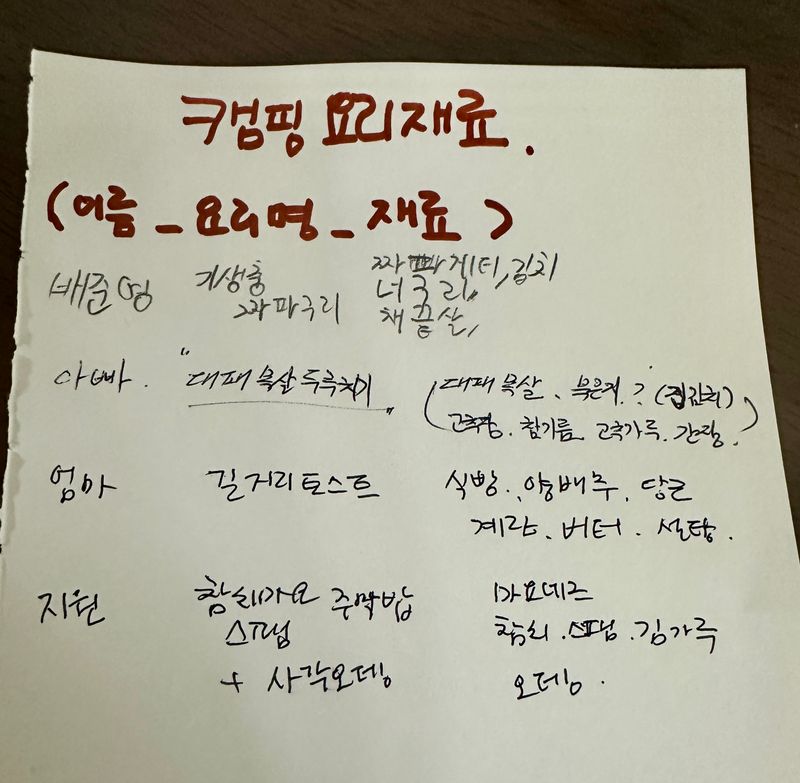 캠핑 요리재료.
(이름 _ 요리명 _ 재료)
배준영 기생충 짜파게티, 김치
짜파구리 너구리,
채끝살,
아빠. "대패목살두루치기" (대패목살. 묵은지? (집김치)
고추장. 참기름. 고추가루. 간장.)
엄마 길거리토스트 식빵. 양배추. 당근
계란. 버터. 설탕.
지원 참치마요 주먹밥 마요네즈
스팸 참치. 스팸. 김가루
+ 사각오뎅 오뎅.